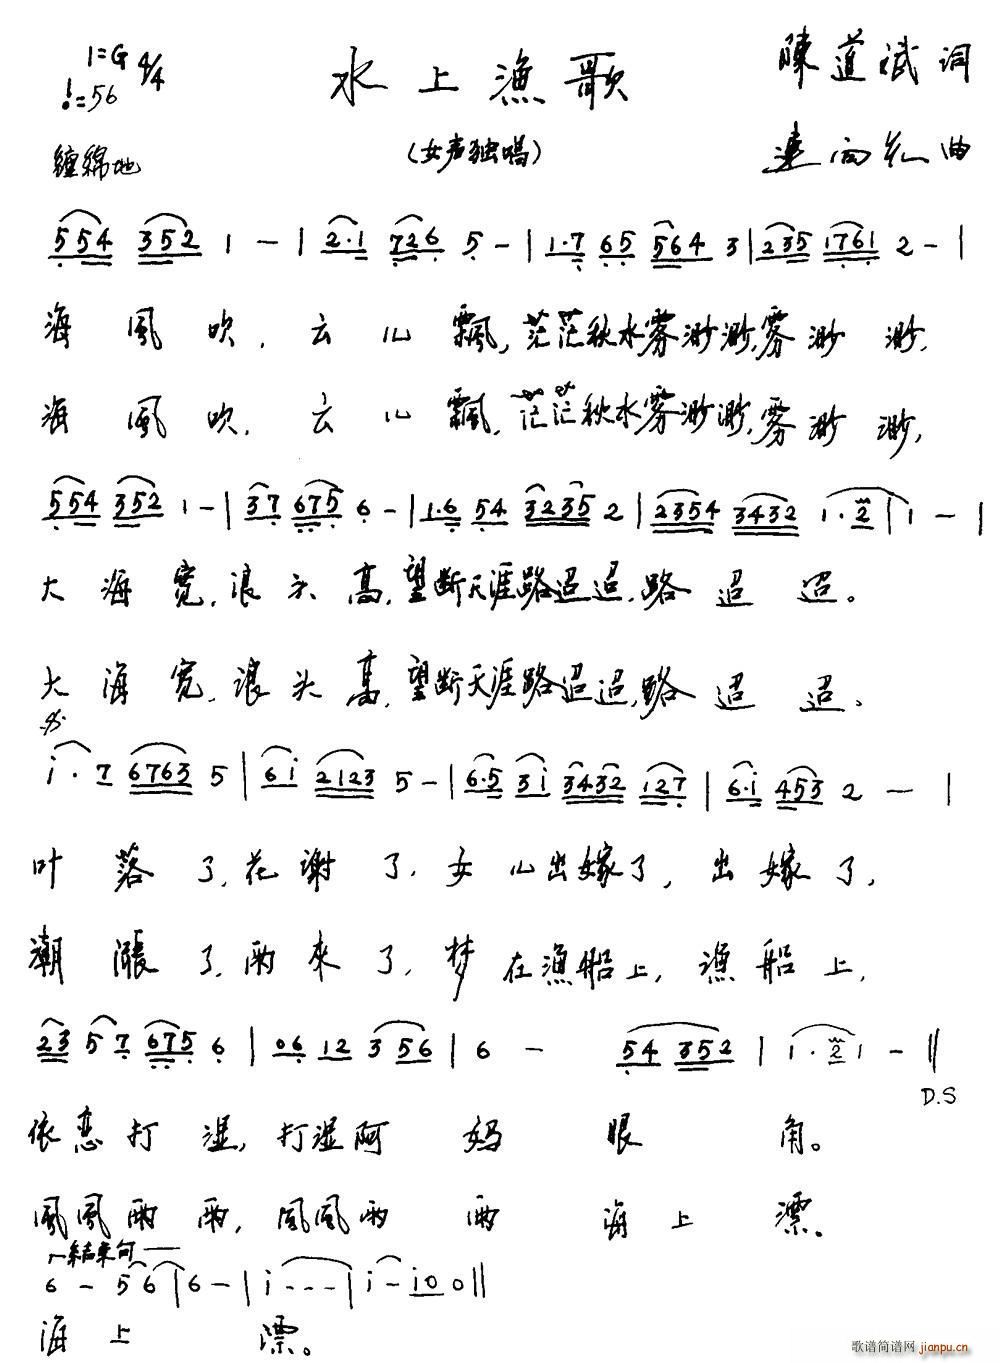 1=G 4/4 水上漁歌 陳道斌 词
♩=56
缠綿地 (女声独唱) 連向先 曲
5 5 4 3 5 2 1 - | 2·1 7 2 6 5 - | 1·7 6 5 5 6 4 3 | 2 3 5 1 7 6 1 2 - |
海風吹,云儿飄,茫茫秋水雾渺渺,雾渺渺,
海風吹,云儿飄,茫茫秋水雾渺渺,雾渺渺,
5 5 4 3 5 2 1 - | 3 7 6 7 5 6 - | 1·6 5 4 3 2 3 5 2 | 2 3 5 4 3 4 3 2 1·2 | 1 - |
大海宽,浪头高,望断天涯路迢迢,路迢迢。
大海宽,浪头高,望断天涯路迢迢,路迢迢。
i·7 6 7 6 3 5 | 6 i 2 1 2 3 5 - | 6·5 3 i 3 4 3 2 1 2 7 | 6·i 4 5 3 2 - |
叶落了,花谢了,女儿出嫁了,出嫁了,
潮漲了,雨來了,梦在漁船上,漁船上,
2 3 5 7 6 7 5 6 | 0 6 1 2 3 5 6 | 6 - 5 4 3 5 2 | 1·2 1 - ||
D.S
依恋打湿,打湿阿妈眼角。
風風雨雨,風風雨雨海上漂。
結束句
6 - 5 6 | 6 - | i - - - | i - i 0 0 ||
海上漂。
歌谱简谱网 jianpu.cn